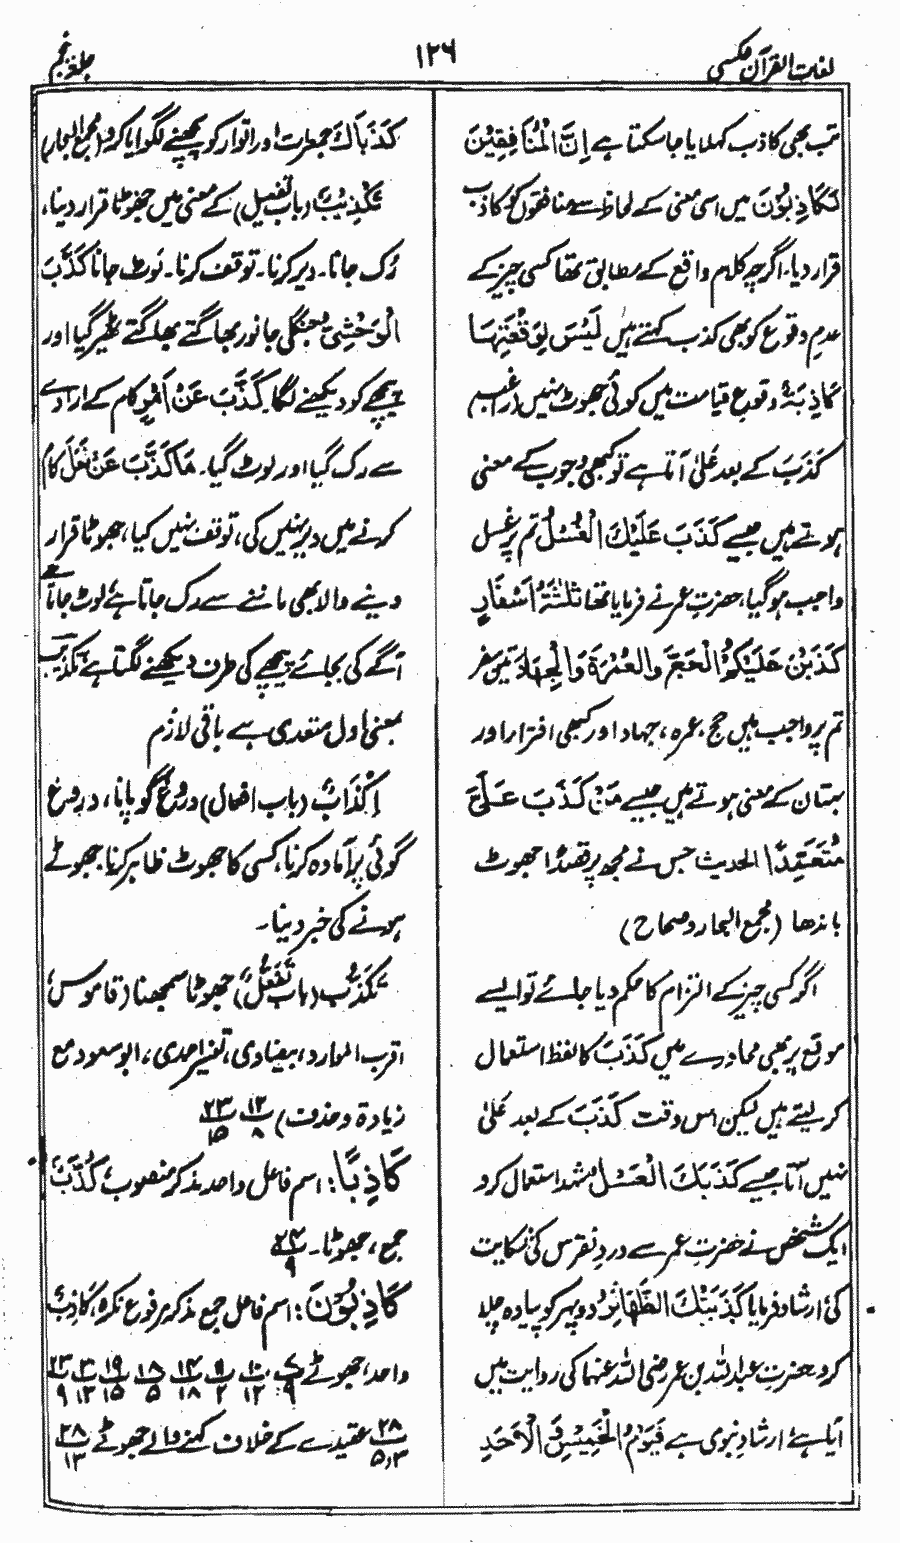 لغات القرآن عکسی
۱۲۶
جلد پنجم
تب بھی کاذب کہلایا جا سکتا ہے اِنَّ الْمُنَافِقِیْنَ
لَکَاذِبُوْنَ میں اسی معنی کے لحاظ سے منافقوں کو کاذب
قرار دیا۔ اگرچہ کلام واقع کے مطابق تھا کسی چیز کے
عدمِ وقوع کو بھی کذب کہتے ہیں لَیْسَ لِوَقْعَتِہَا
کَاذِبَۃٌ وقوعِ قیامت میں کوئی جھوٹ نہیں (راغب)
کَذَبَ کے بعد عَلٰی آتا ہے تو کبھی وجوب کے معنی
ہوتے ہیں جیسے کَذَبَ عَلَیْكَ الْغُسْلُ تم پر غسل
واجب ہو گیا، حضرتِ عمر نے فرمایا تھا ثَلٰثَۃُ اَسْفَارٍ
کَذَبْنَ عَلَیْکُمُ الْحَجُّ والعُمْرَۃُ وَالْجِہَادُ تین سفر
تم پر واجب ہیں حج، عمرہ، جہاد اور کبھی افترا اور
بہتان کے معنی ہوتے ہیں جیسے مَنْ کَذَبَ عَلَیَّ
مُتَعَمِّدًا الحدیث جس نے مجھ پر قصدًا جھوٹ
باندھا (مجمع البحار و صحاح)
اگر کسی چیز کے الزام کا حکم دیا جائے تو ایسے
موقع پر بھی محاورے میں کَذَبَ کا لفظ استعمال
کر لیتے ہیں لیکن اس وقت کَذَبَ کے بعد عَلٰی
نہیں آتا جیسے کَذَبَكَ الْعَسَلُ شہد استعمال کرو
ایک شخص نے حضرتِ عمر سے دردِ نقرس کی شکایت
کی ارشاد فرمایا کَذَبَتْكَ الظَّهَائِرُ دوپہر کو پیادہ چلا
کرو، حضرتِ عبداللہ بن عمر رضی اللہ عنہما کی روایت میں
آیا ہے ارشادِ نبوی ہے فَیَوْمُ الْخَمِیْسِ وَ الْاَحَدِ
کَذَبَاكَ جمعرات اور اتوار کو پچھنے لگوایا کرو (مجمع البحار)
تَکْذِیْبٌ (باب تفعیل) کے معنی میں جھوٹا قرار دینا،
رُک جانا۔ دیر کرنا۔ توقف کرنا۔ لَوٹ جانا کَذَّبَ
الْوَحْشِیُّ جنگلی جانور بھاگتے بھاگتے ٹھہر گیا اور
پیچھے کو دیکھنے لگا۔ کَذَّبَ عَنْ اَمْرٍ کام کے ارادے
سے رک گیا اور لوٹ گیا۔ مَا کَذَّبَ عَنْ فَعَلَ کام
کرنے میں دیر نہیں کی، توقف نہیں کیا، جھوٹا قرار
دینے والا بھی ماننے سے رک جاتا ہے، لوٹ جاتا ہے
آگے کی بجائے پیچھے کی طرف دیکھنے لگتا ہے تکذیب
بمعنی اول متعدی ہے باقی لازم
اِکْذَابٌ (باب افعال) دروغ گو پانا، دروغ
گوئی پر آمادہ کرنا، کسی کا جھوٹ ظاہر کرنا۔ جھوٹے
ہونے کی خبر دینا۔
تَکَذُّب (باب تَفَعُّل) جھوٹا سمجھنا (قاموس،
اقرب الموارد، بیضاوی، تفسیر احمدی، ابو سعود مع
زیادۃ و حذف) ۱۲/۸ ۲۳/۱۵
کَاذِبًا: اسم فاعل واحد مذکر منصوب، کُذَّبٌ
جمع، جھوٹا۔ ۲۴/۹
کَاذِبُوْنَ: اسم فاعل جمع مذکر مرفوع نکرہ، کَاذِبٌ
واحد، جھوٹے ۷/۹ ۱۰/۱۲ ۹/۲ ۱۴/۱۸ ۱۸/۵ ۱۹/۱۵ ۲۰/۱۳ ۲۳/۹
۲۸/۵،۳ عقیدے کے خلاف کہنے والے جھوٹے ۲۸/۱۳